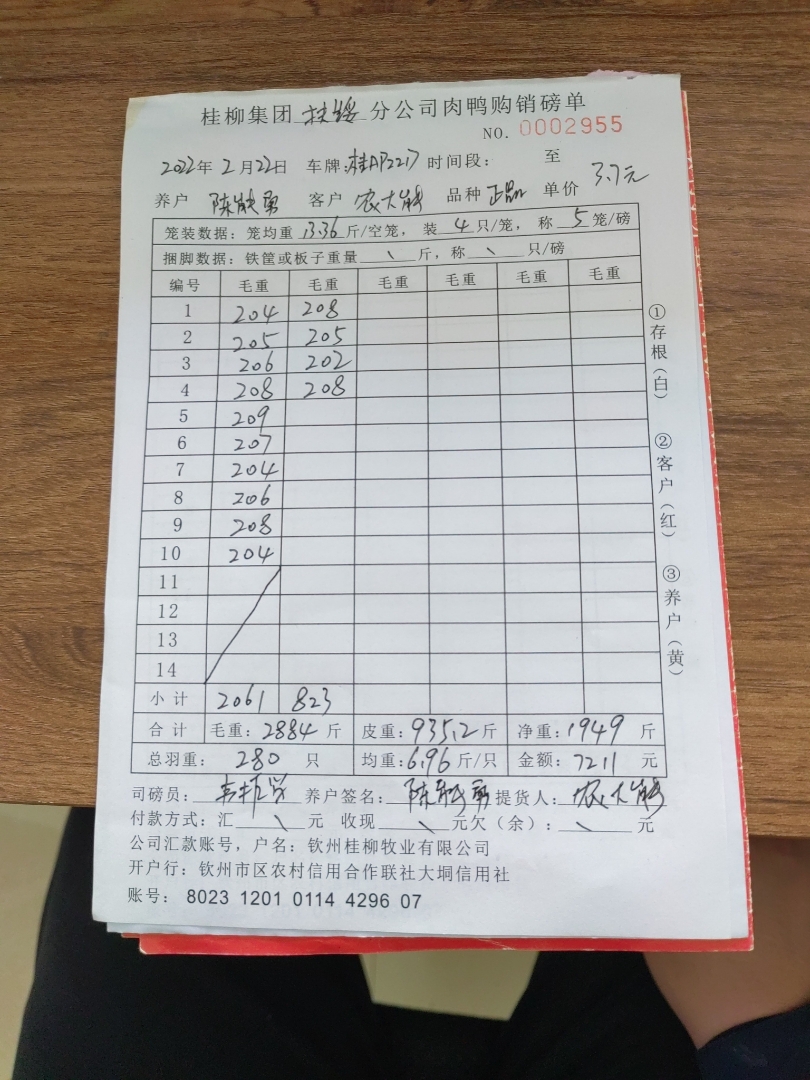 桂柳集团 扶绥 分公司肉鸭购销磅单
NO. 0002955
2022年 2月22日 车牌:桂AP2217 时间段: 至
养户 陈 勇 客户 农大 品种 正品 单价 3.7元
笼装数据:笼均重 13.36 斤/空笼, 装 4 只/笼, 称 5 笼/磅
捆脚数据:铁筐或板子重量 \ 斤,称 \ 只/磅
编号 毛重 毛重 毛重 毛重 毛重 毛重
1 204 208
2 205 205
3 206 202
4 208 208
5 209
6 207
7 204
8 206
9 208
10 204
11
12
13
14
小计 2061 823
合计 毛重:2884斤 皮重:935.2斤 净重:1949 斤
总羽重: 280 只 均重:6.96斤/只 金额:7211 元
司磅员: 养户签名:陈 勇 提货人:农大
付款方式:汇 \ 元 收现 \ 元欠(余): \ 元
公司汇款账号,户名:钦州桂柳牧业有限公司
开户行:钦州市区农村信用合作联社大垌信用社
账号: 8023 1201 0114 4296 07
①存根(白)
②客户(红)
③养户(黄)